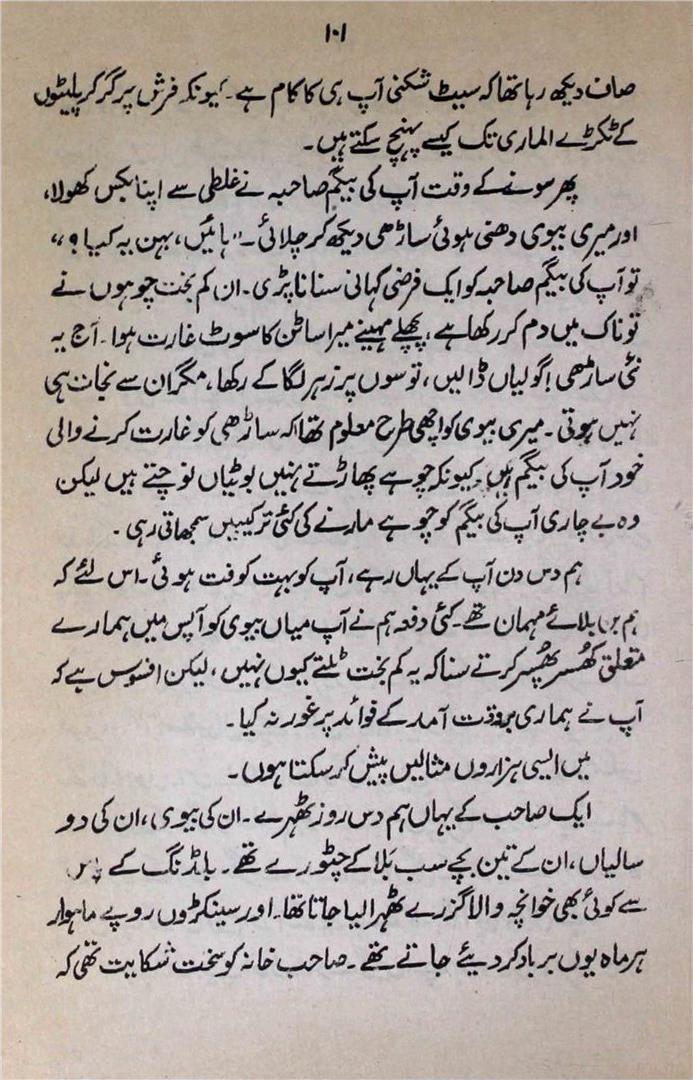 ۱۰۱
صاف دیکھ رہا تھا کہ سیٹ شکنی آپ ہی کا کام ہے۔ کیونکہ فرش پر گر کر پلیٹوں
کے ٹکڑے الماری تک کیسے پہنچ سکتے ہیں۔
پھر سونے کے وقت آپ کی بیگم صاحبہ نے غلطی سے اپنا بکس کھولا،
اور میری بیوی دھنی ہوئی ساڑھی دیکھ کر چلائی۔ "ہائیں، بہن یہ کیا؟"
تو آپ کی بیگم صاحبہ کو ایک فرضی کہانی سنانا پڑی۔ ان کم بخت چوہوں نے
تو ناک میں دم کر رکھا ہے، پچھلے مہینے میرا ساٹن کا سوٹ غارت ہوا۔ آج یہ
نئی ساڑھی! گولیاں ڈالیں، توسوں پر زہر لگا کے رکھا، مگر ان سے نجات ہی
نہیں ہوتی۔ میری بیوی کو اچھی طرح معلوم تھا کہ ساڑھی کو غارت کرنے والی
خود آپ کی بیگم ہیں۔ کیونکہ چوہے پھاڑتے نہیں بوٹیاں نوچتے ہیں لیکن
وہ بے چاری آپ کی بیگم کو چوہے مارنے کی کئی ترکیبیں سمجھاتی رہی۔
ہم دس دن آپ کے یہاں رہے، آپ کو بہت کوفت ہوئی۔ اس لئے کہ
ہم بن بلائے مہمان تھے۔ کئی دفعہ ہم نے آپ میاں بیوی کو آپس میں ہمارے
متعلق کھُسر پھُسر کرتے سنا کہ یہ کم بخت ٹلتے کیوں نہیں، لیکن افسوس ہے کہ
آپ نے ہماری بروقت آمد کے فوائد پر غور نہ کیا۔
میں ایسی ہزاروں مثالیں پیش کر سکتا ہوں۔
ایک صاحب کے یہاں ہم دس روز ٹھہرے۔ ان کی بیوی، ان کی دو
سالیاں، ان کے تین بچے سب بَلا کے چٹورے تھے۔ بلڈنگ کے پاس
سے کوئی بھی خوانچہ والا گزرے ٹھہرا لیا جاتا تھا۔ اور سینکڑوں روپے ماہوار
ہر ماہ یوں برباد کر دیئے جاتے تھے۔ صاحب خانہ کو سخت شکایت تھی کہ